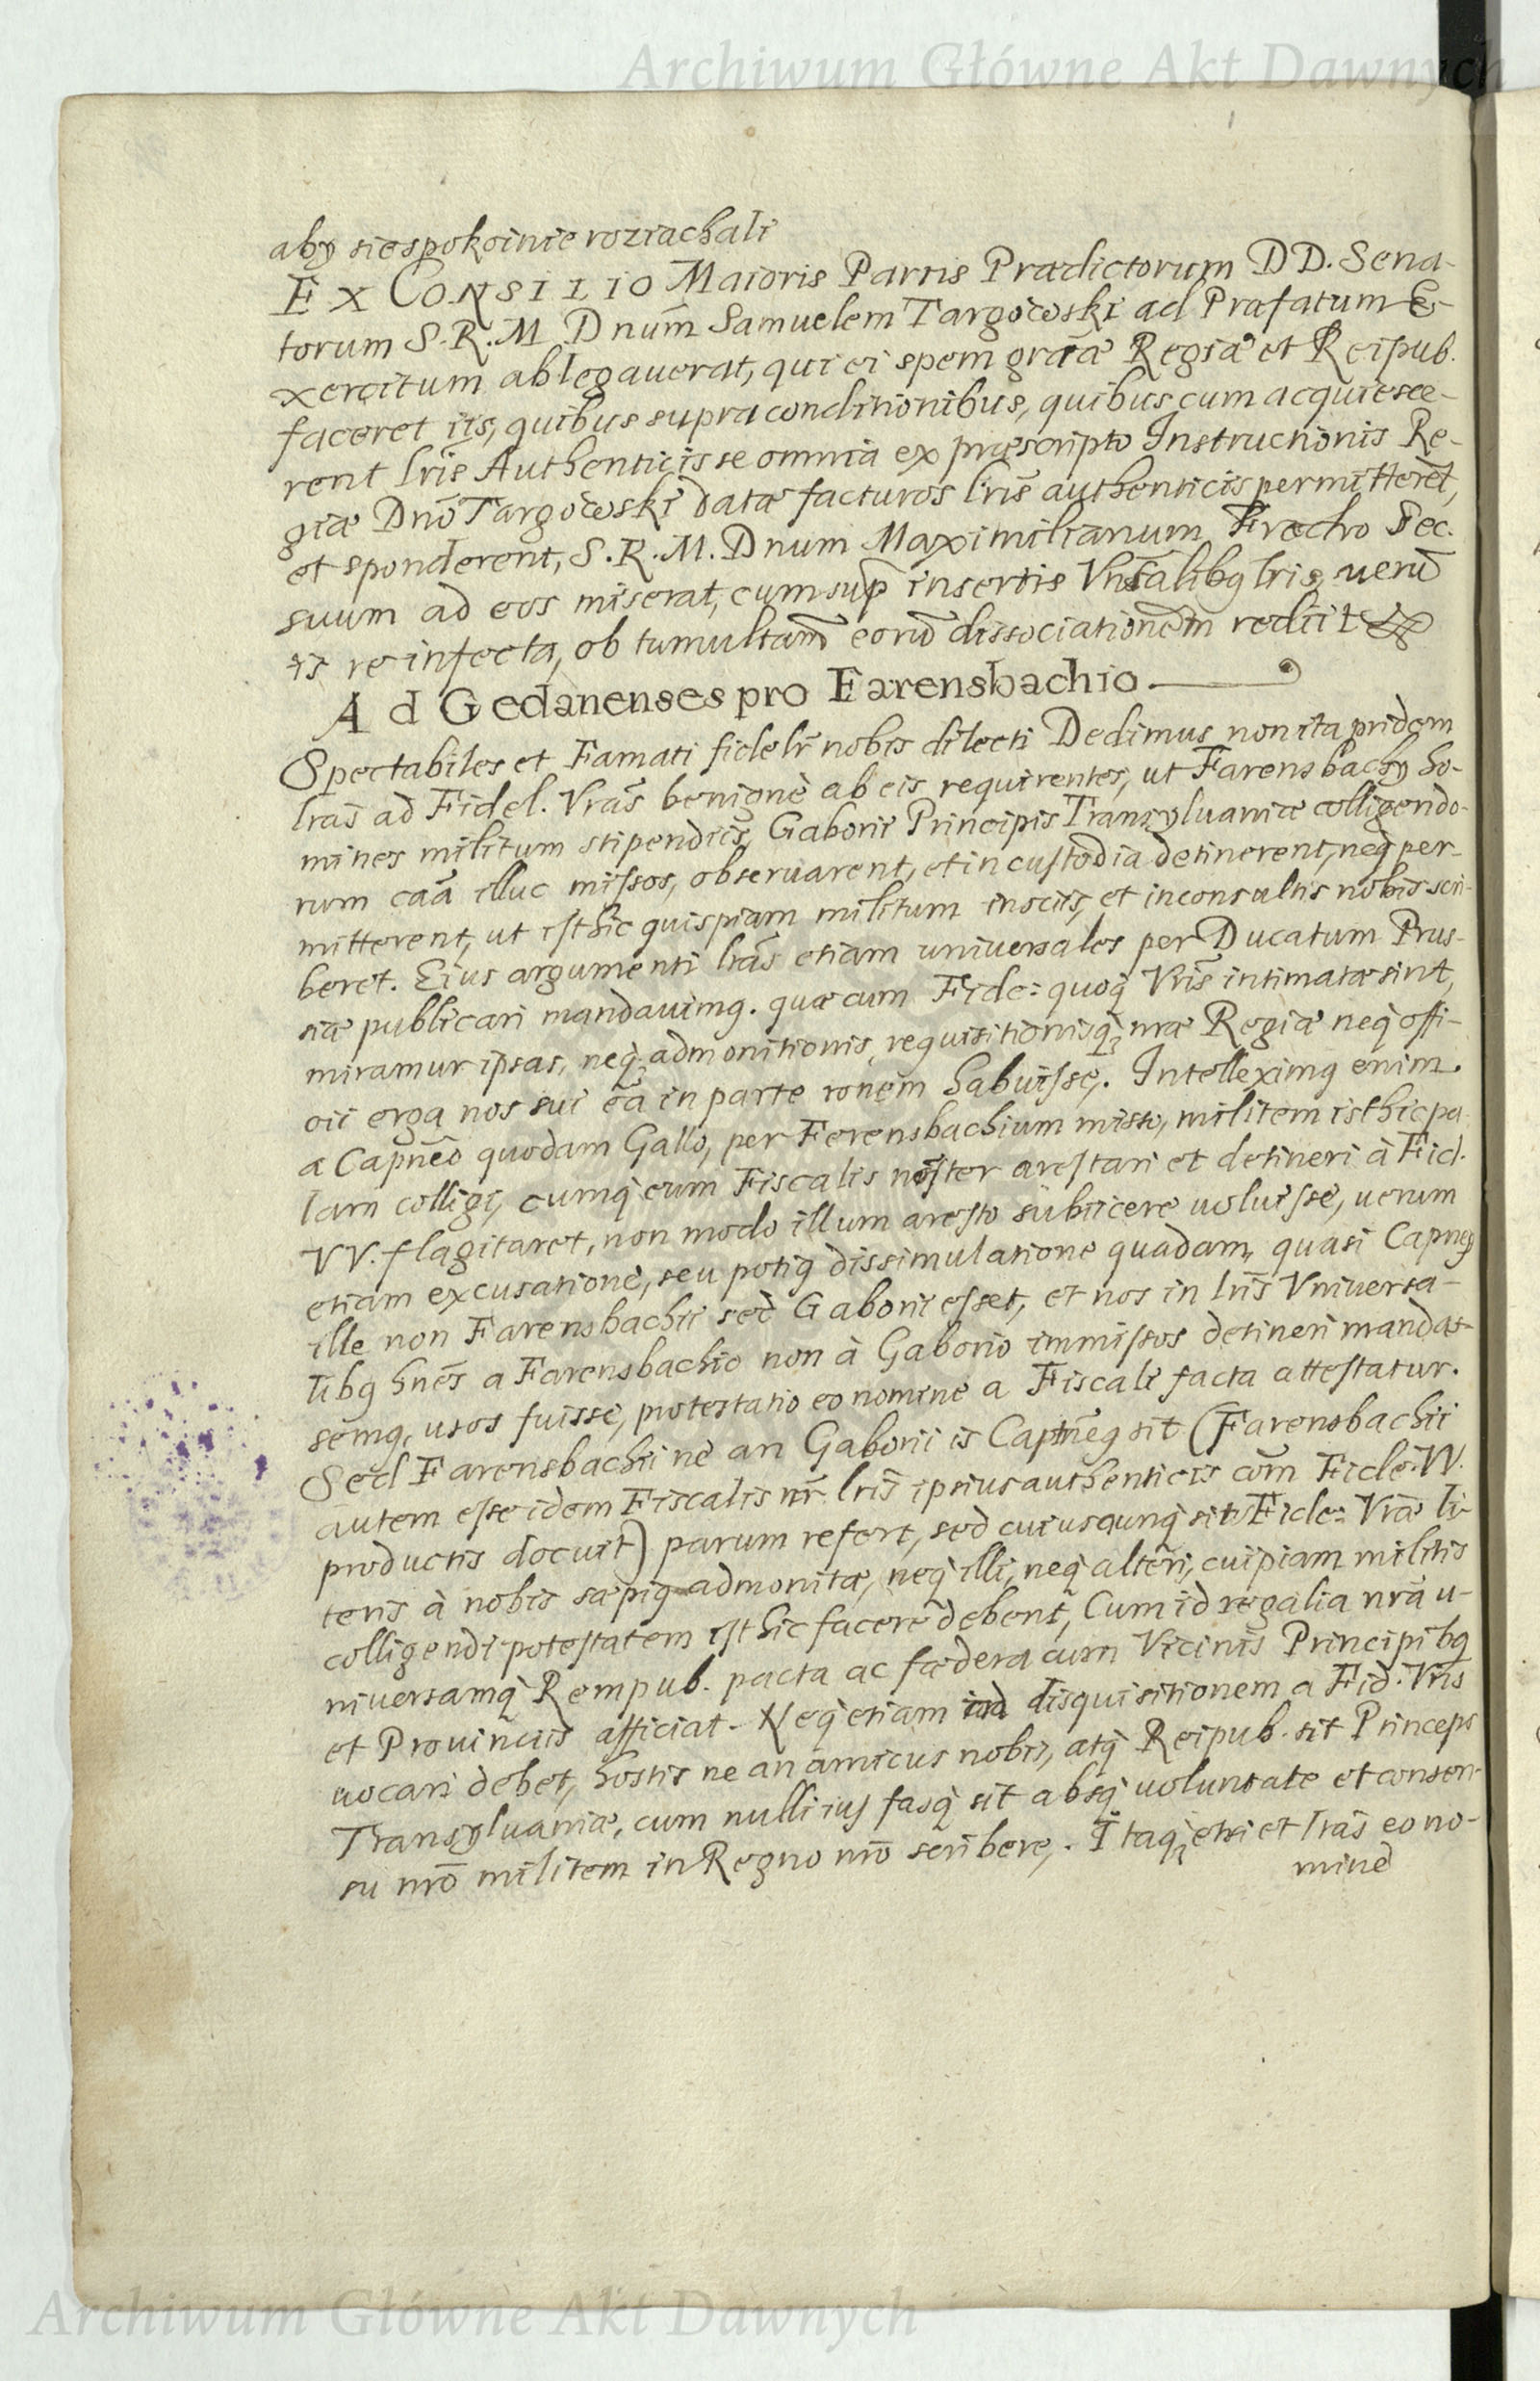 Archiwum Główne Akt Dawnych
aby sie spokoinie roziachali
EX CONSILIO Maioris Partis Prædictorum DD. Sena-
torum S.R.M. Dnum̃ Samuelem Targowski ad Præfatum E-
xercitum ablegauerat, qui ei spem gratiæ Regiæ et Reipub.
faceret iis, quibus supra conditionibus, quibus cum acquiesce-
rent lris Authenticis se omnia ex præscripto Instructionis Re-
giæ Dnō Targowski datæ facturos lris authenticis permitterēt,
et sponderent, S.R.M. Dnum Maximilianum Fredro Sec.
suum ad eos miserat, cum sup insertis Vnsalibq lris, uerū
is re infecta, ob tumultam eorū dissociationem rediit
Ad Gedanenses pro Farensbachio.
Spectabiles et Famati fideles nobis dilecti Dedimus non ita pridem
lras ad Fidel. Vras benignè ab eis requirentes, ut Farensbachy ho-
mines militum stipendiis Gaboris Principis Transyluaniæ colligendo-
rum caā illuc missos, obseruarent, et in custodia detinerent, neq per-
mitterent, ut isthic quispiam militum insciis, et inconsultis nobis scri-
beret. Eius argumenti lras etiam uniuersales per Ducatum Prus-
siæ publicari mandauimq. quæ cum Fide: quoq Vris intimatæ sint,
miramur ipsas, neq admonitionis, requisitionisq nræ Regiæ neq offi-
cii erga nos sui eā in parte ronem habuisse. Intelleximq enim
a Capneō quodam Gallo, per Ferensbachium misso, militem isthic pa
lam colligi, cumq eum Fiscalis noster arestari et detineri à Fid.
VV. flagitaret, non modo illum aresto subiicere uoluisse, uerum
etiam excusatione, seu potiq dissimulatione quadam, quasi Capneq
ille non Farensbachii sed Gaborii esset, et nos in lris Vniuersa-
libq hnes a Farensbachio non à Gaborio immissos detineri mandas-
semq, usos fuisse, protestatio eo nomine a Fiscali facta attestatur.
Sed Farensbachii ne an Gaborii is Captneq sit (Farensbachii
autem esse idem Fiscalis nr lris ipsius authenticis com Fide. VV.
productis docuit) parum refert, sed cuiuscunq sit Fide: Vræ li-
teris à nobis sæpiq admonitæ, neq illi, neq alteri, cuipiam militis
colligendi potestatem isthic facere debent, Cum id regalia nra u-
niuersamq Rempub. pacta ac fœdera cum Vicinis Principibq
et Prouinciis afficiat. Neq etiam in disquisitionem a Fid. Vris
uocari debet, hostis ne an amicus nobis, atq Reipub. sit Princeps
Transyluaniæ, cum nulli ius fasq sit absq uoluntate et consen-
su nrō militem in Regno nrō scribere. Itaq etsi et lras eo no-
mine
Archiwum Główne Akt Dawnych